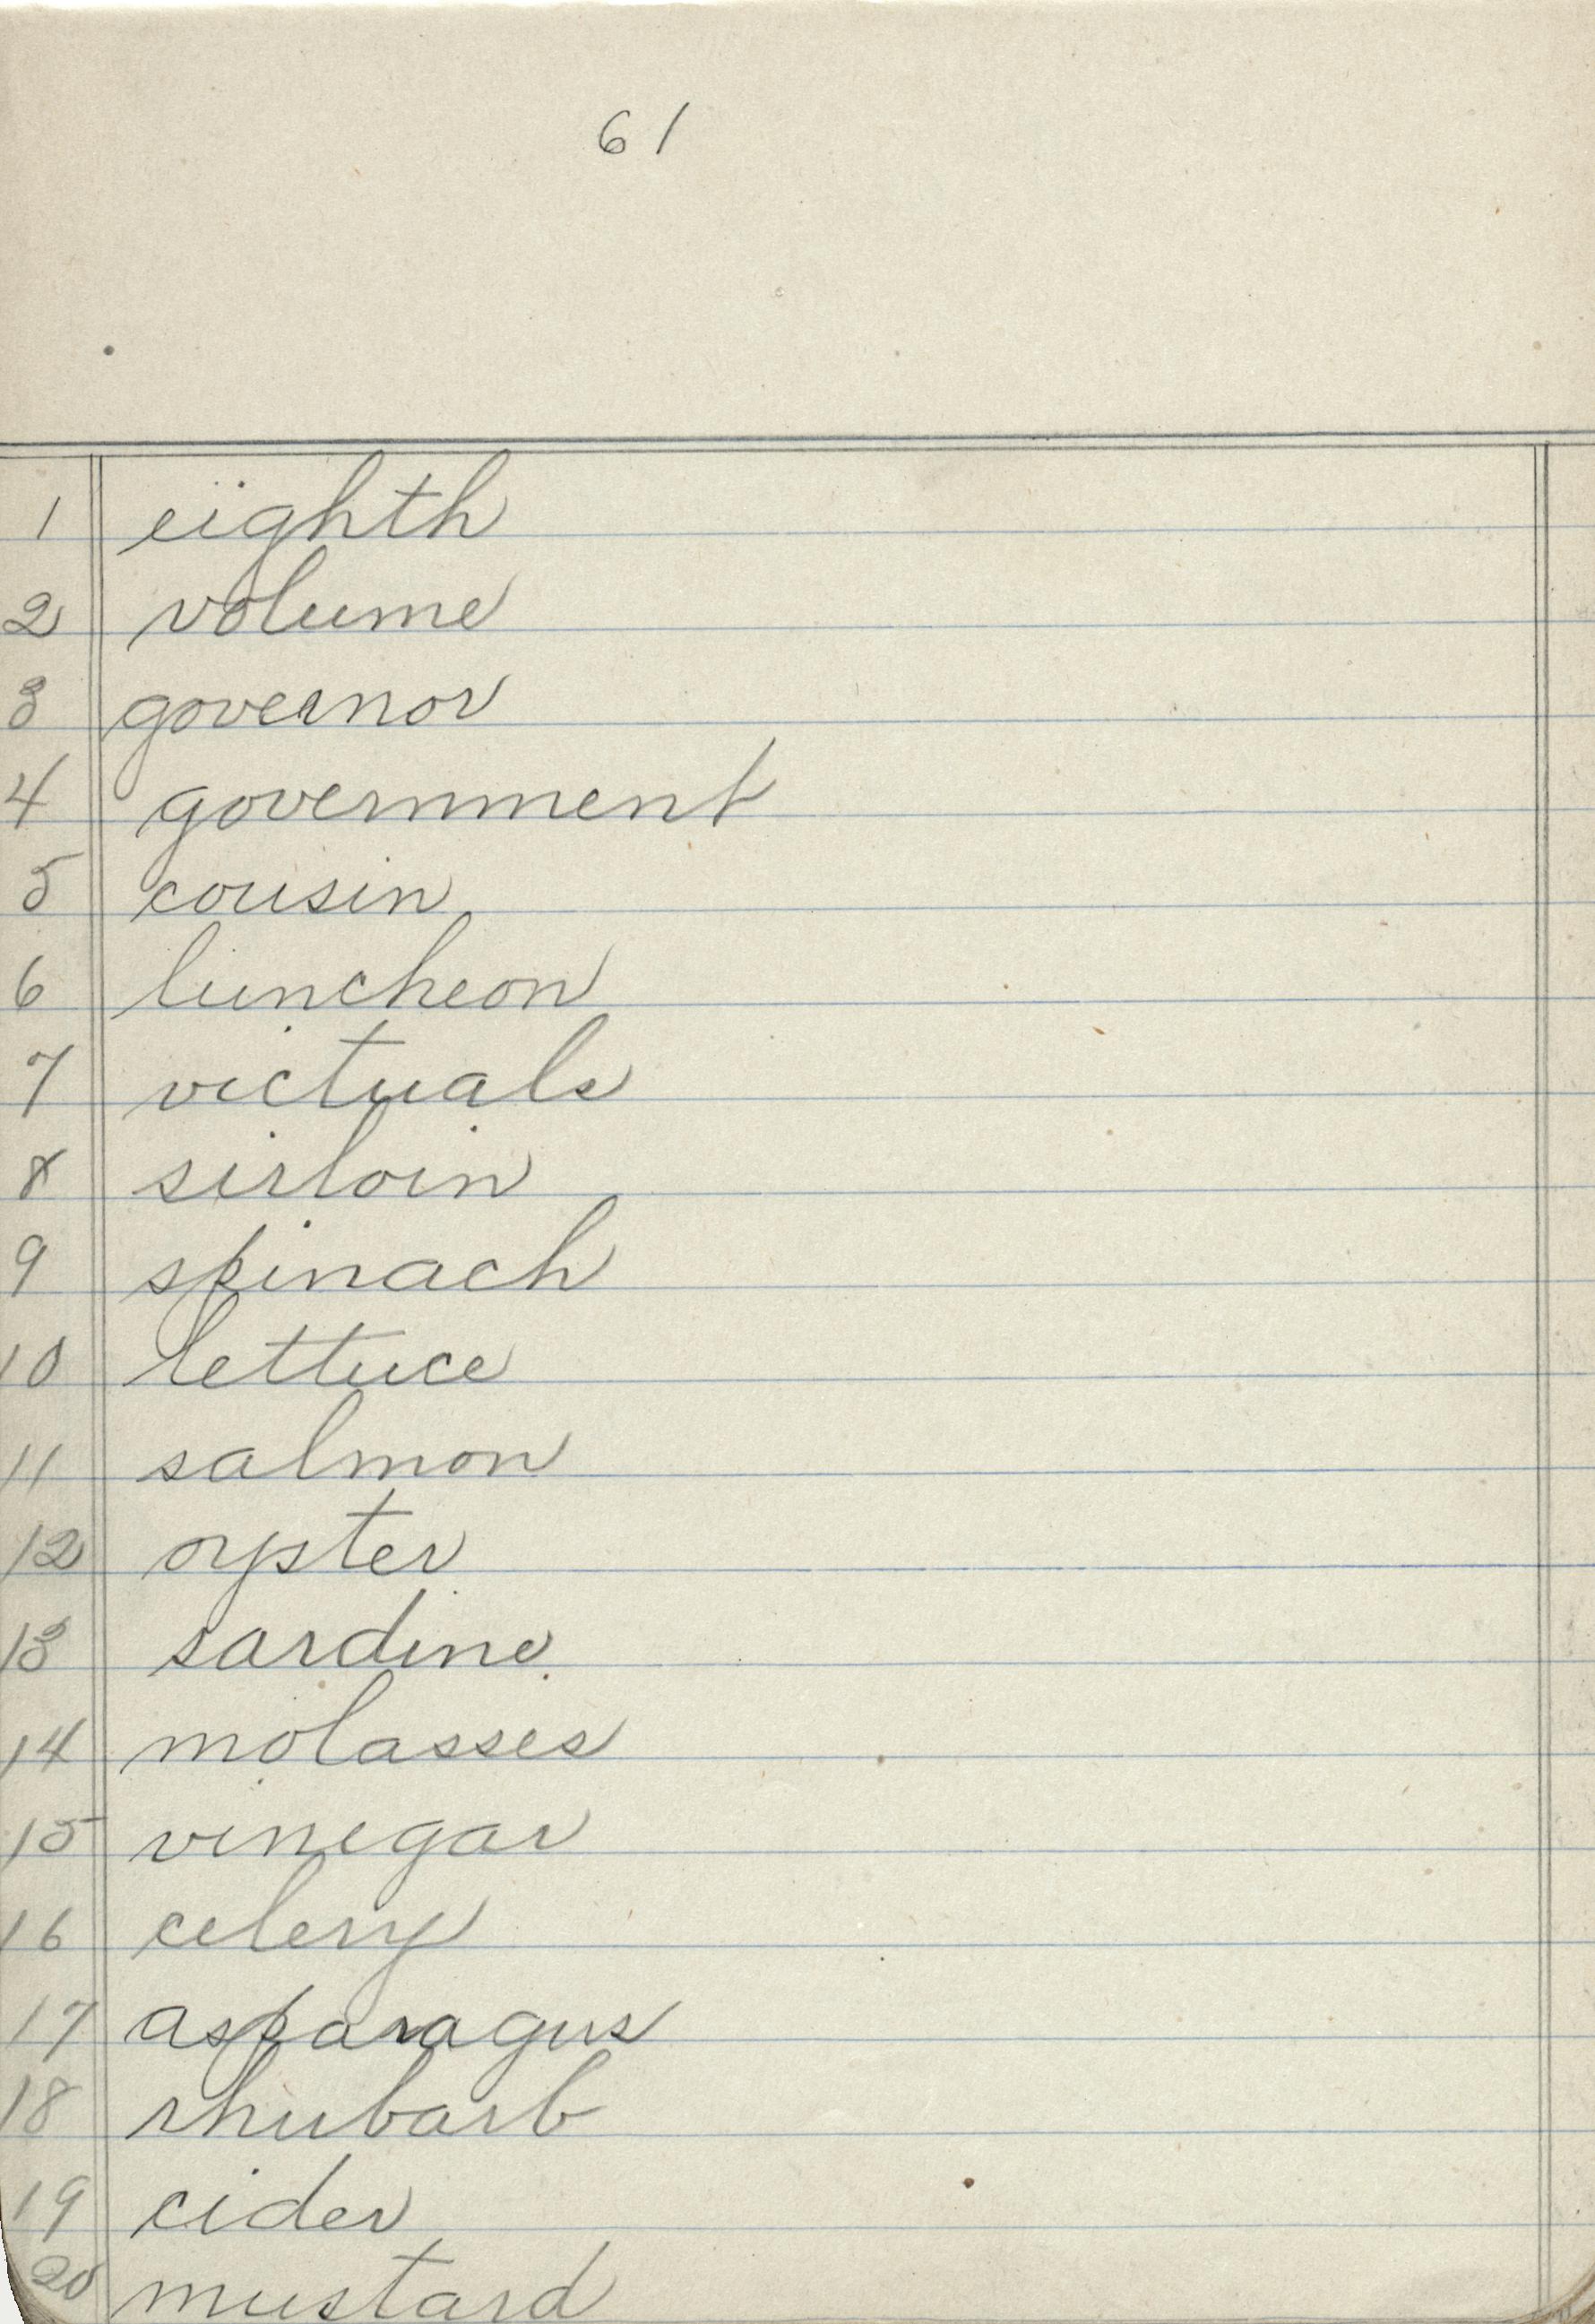 61
1 eighth
2 volume
3 governor
4 government
5 cousin
6 luncheon
7 victuals
8 sirloin
9 spinach
10 lettuce
11 salmon
12 oyster
13 sardine
14 molasses
15 vinegar
16 celery
17 asparagus
18 rhubarb
19 cider
20 mustard